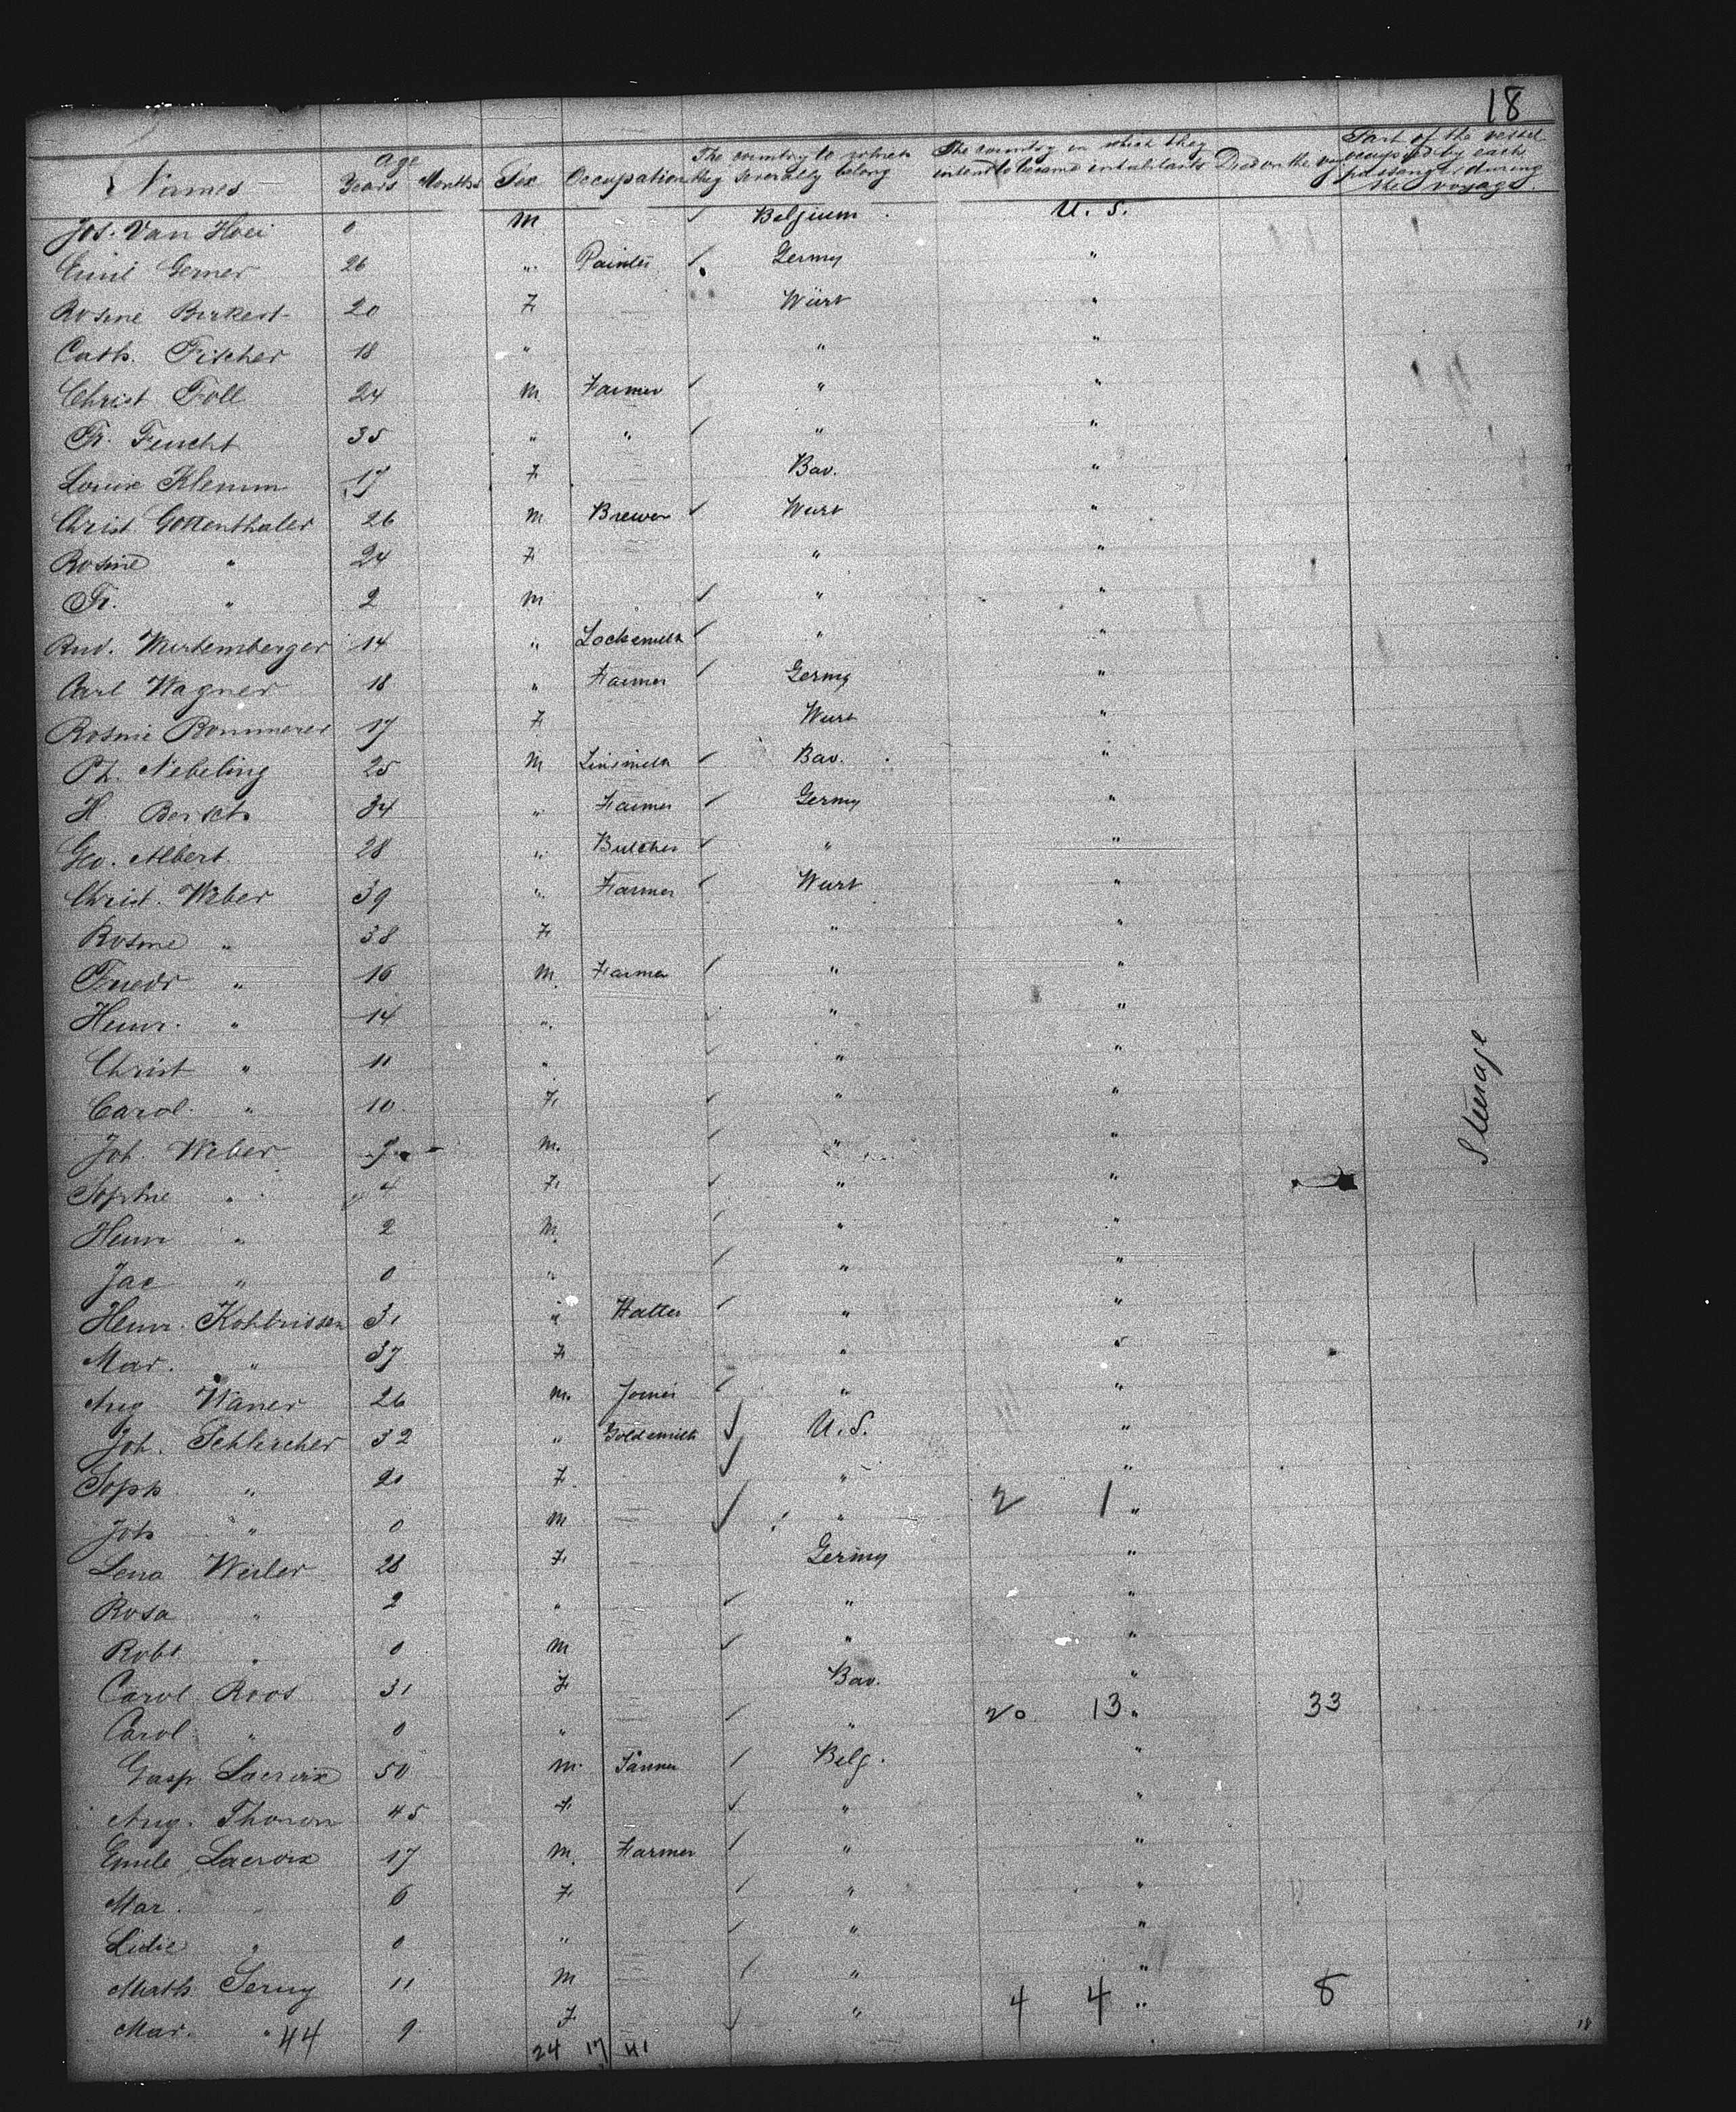 18
Names Age Years Months Sex Occupation The country to which they severally belong The country in which they intend to become inhabitants Died on the voy Part of the vessel occupied by each passenger during the voyage
Jos. Van Hoei 0 M Belgium U. S.
Emil Gerner 26 " Painter Germy "
Rosine Birkert 20 F Würt "
Cath. Fischer 18 " " "
Christ Foll 24 M Farmer " "
Fr. Feucht 35 " " " "
Louise Klemm 17 F Bav. "
Christ Gottenthaler 26 M Brewer Wurt "
Rosine " 24 F " "
Fr. " 2 M " "
Rud. Wurtemberger 14 " Locksmith " "
Carl Wagner 18 " Farmer Germy "
Rosine Bommerer 17 F Wurt "
Ph. Nebeling 25 M Bav. "
H. Bersch 34 " Farmer Germy "
Geo. Albert 28 " Butcher " "
Christ. Weber 39 " Farmer Wurt "
Rosine " 38 F " "
Friedr " 16 M. Farmer " "
Heinr. " 14 " " "
Christ " 11 " " "
Carol. " 10 F " "
Joh. Weber M. " "
Sophie " 4 F " "
Heinr " 2 M. " "
Jac " 0 " " "
Heinr. 31 " Hatter " "
Mar. " 37 F " "
Aug Waner 26 M. Joiner " "
Joh. Schlircher 32 " Goldsmith U. S. "
Soph " 20 F. " "
Joh " 0 M " 2 1 "
Lena Weiler 28 F Germy "
Rosa " 2 " " "
Robt " 0 M " "
Carol Roos 31 F Bav. "
Carol " 0 " " 20 13 " 33
Gasp. Lacroix 50 M. Tanner Belg. "
Aug. Thonon 45 F " "
Emile Lacroix 17 M. Farmer " "
Mar. " 6 F " "
Lidie " 0 " " "
Math. Serug 11 M " "
Mar. " 9 F " 4 4 " 8
44 24 17 41
Steerage
18